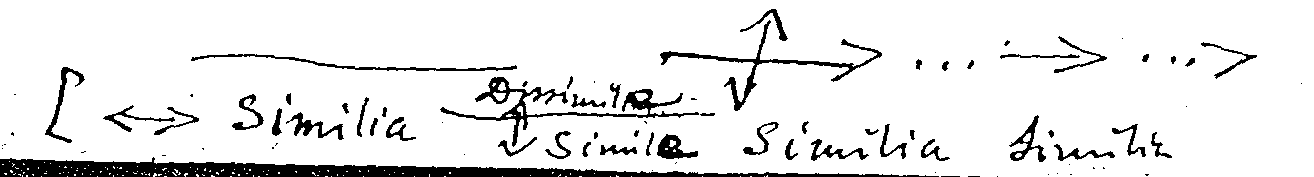 [ ↔ Similia Dissimile ↕ Simile Similia Similia